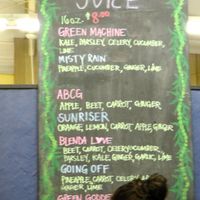 JUICE
16oz. $8.00
GREEN MACHINE
KALE, PARSLEY, CELERY, CUCUMBER,
LIME
MISTY RAIN
PINEAPPLE, CUCUMBER, GINGER, LIME
ABCG
APPLE, BEET, CARROT, GINGER
SUNRISER
ORANGE, LEMON, CARROT, APPLE, GINGER
BLENDA LOVE
BEET, CARROT, CELERY, CUCUMBER,
PARSLEY, KALE, GINGER, GARLIC, LIME
GOING OFF
PINEAPPLE, CARROT, CELERY,
GINGER, LIME
GREEN GODDE